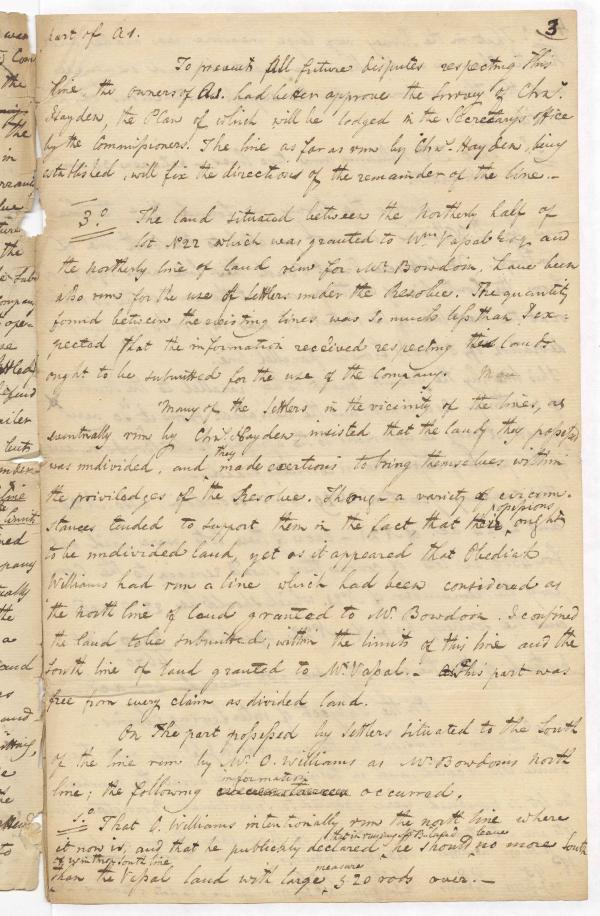 3
part of A1.
To prevent all future disputes respecting this
line, the owners of A1. had better approve the Survey of Chn.
Hayden, the Plan of which will be lodged in the Secretary's office
by the Commissioners. The line as far as run by Chs. Hayden, being
established, will fix the directions of the remainder of the line.—
3.o The land situated between the Northerly half of
lot No 22 which was granted to Wm Vassal Esq. and
the northerly line of land run for Mr. Bowdoin, have been
also run for the use of Settlers under the Resolve. The quantity
found between the existing lines was so much less than I ex-
pected that the information received respecting this land
ought to be submitted for the use of the Company.
Many of the Settlers, in the vicinity of the lines, as
eventually run by Chs. Hayden insisted that the lands they possessed
was undivided, and they made exertions to bring themselves within
the priviledges of the Resolve. Through a variety of circum-
stances tended to support them in the fact, that their possessions ought
to be undivided land, yet as it appeared that Obediah
Williams had run a line which had been considered as
the north line of land granted to Mr. Bowdoin. I confined
the land to be submitted, within the limits of this line and the
South line of land granted to Mr. Vassal. — This part was
free from every claim as divided land.
On the part possessed by Settlers situated to the South
of the line run by Mr. O. Williams as Mr. Bowdoins North
line; the following information occurred.
That O. Williams intentionally run the north line where
it now is, and that he publickly declared he should leave no more South
of within south line
than the Vassal land with large measure 320 rods over.—